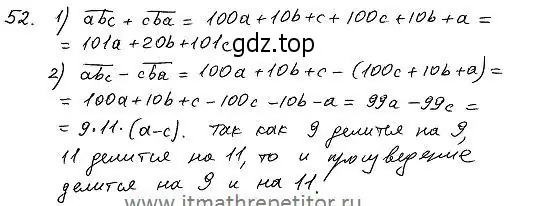 52. 1) a̅b̅c̅ + c̅b̅a̅ = 100a+10b+c+100c+10b+a =
= 101a+20b+101c
gdz.top
2) a̅b̅c̅ - c̅b̅a̅ = 100a+10b+c-(100c+10b+a)=
= 100a+10b+c-100c-10b-a = 99a-99c =
= 9·11·(a-c). Так как 9 делится на 9,
11 делится на 11, то и произведение
делится на 9 и на 11.
www.itmathrepetitor.ru